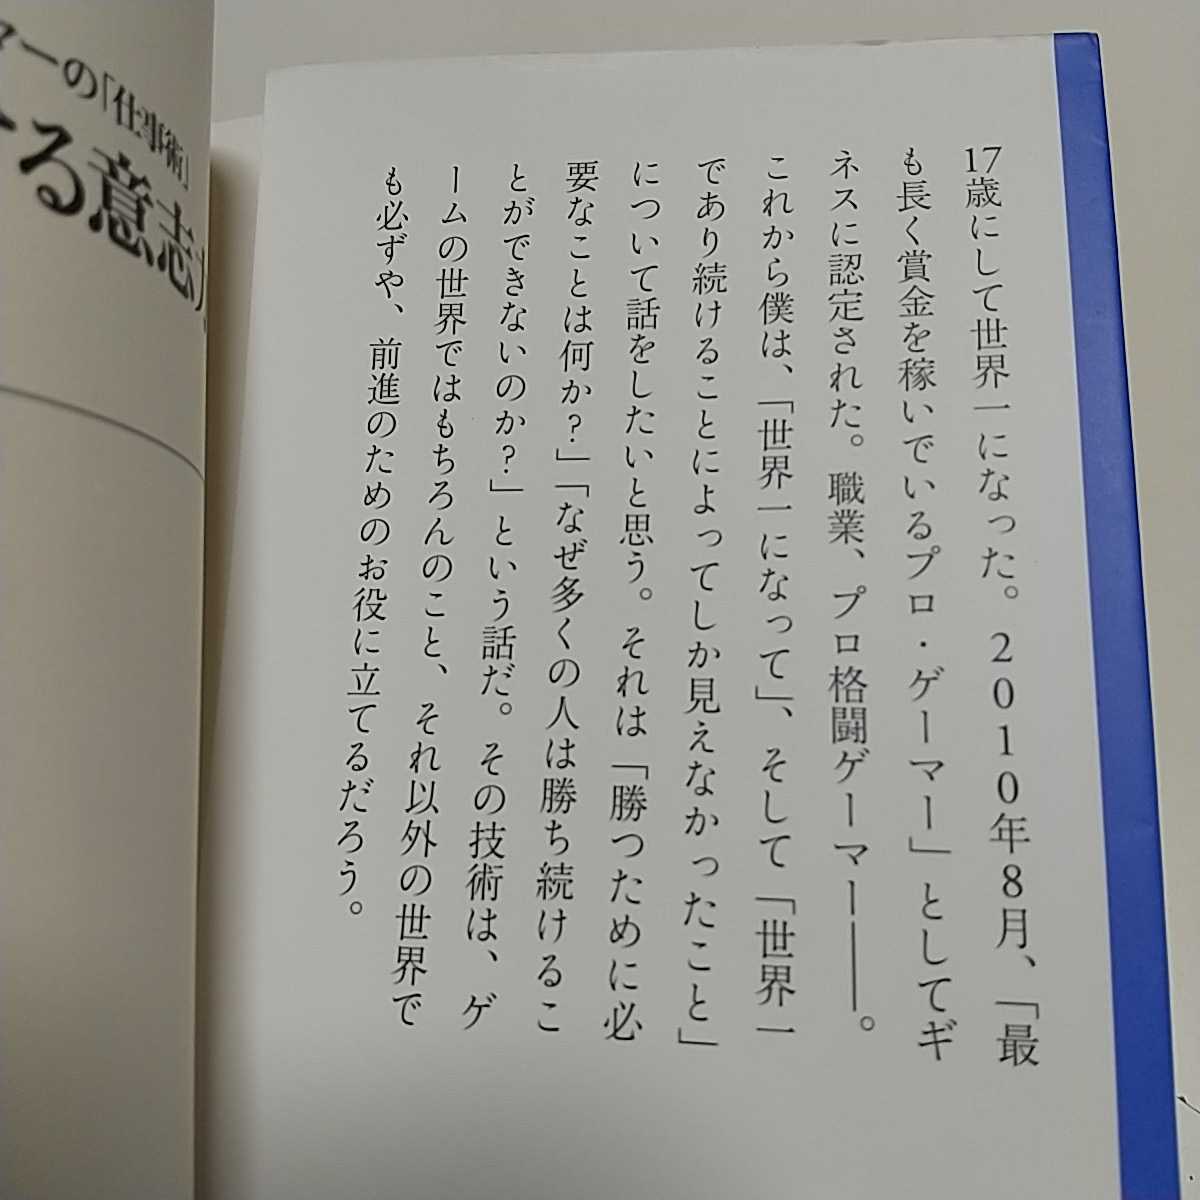 17歳にして世界一になった。2010年8月、「最
も長く賞金を稼いでいるプロ・ゲーマー」としてギ
ネスに認定された。職業、プロ格闘ゲーマー――。
これから僕は、「世界一になって」、そして「世界一
であり続けることによってしか見えなかったこと」
について話をしたいと思う。それは「勝つために必
要なことは何か?」「なぜ多くの人は勝ち続けるこ
とができないのか?」という話だ。その技術は、ゲ
ームの世界ではもちろんのこと、それ以外の世界で
も必ずや、前進のためのお役に立てるだろう。
マーの「仕事術」
る意志